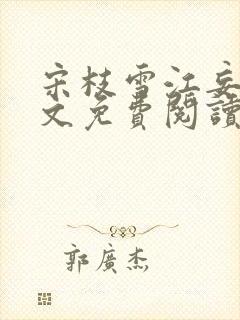 宋枝雪江妄
文免費閱讀
郭廣杰